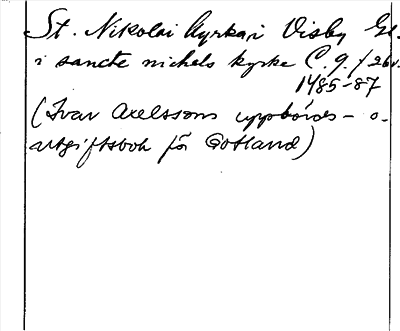 St. Nikolai kyrka i Visby Gl.
i sancte nichels kyrke C. 9. f 26v.
1485-87
(Ivar Axelssons uppbörds- o.
utgiftsbok för Gotland)